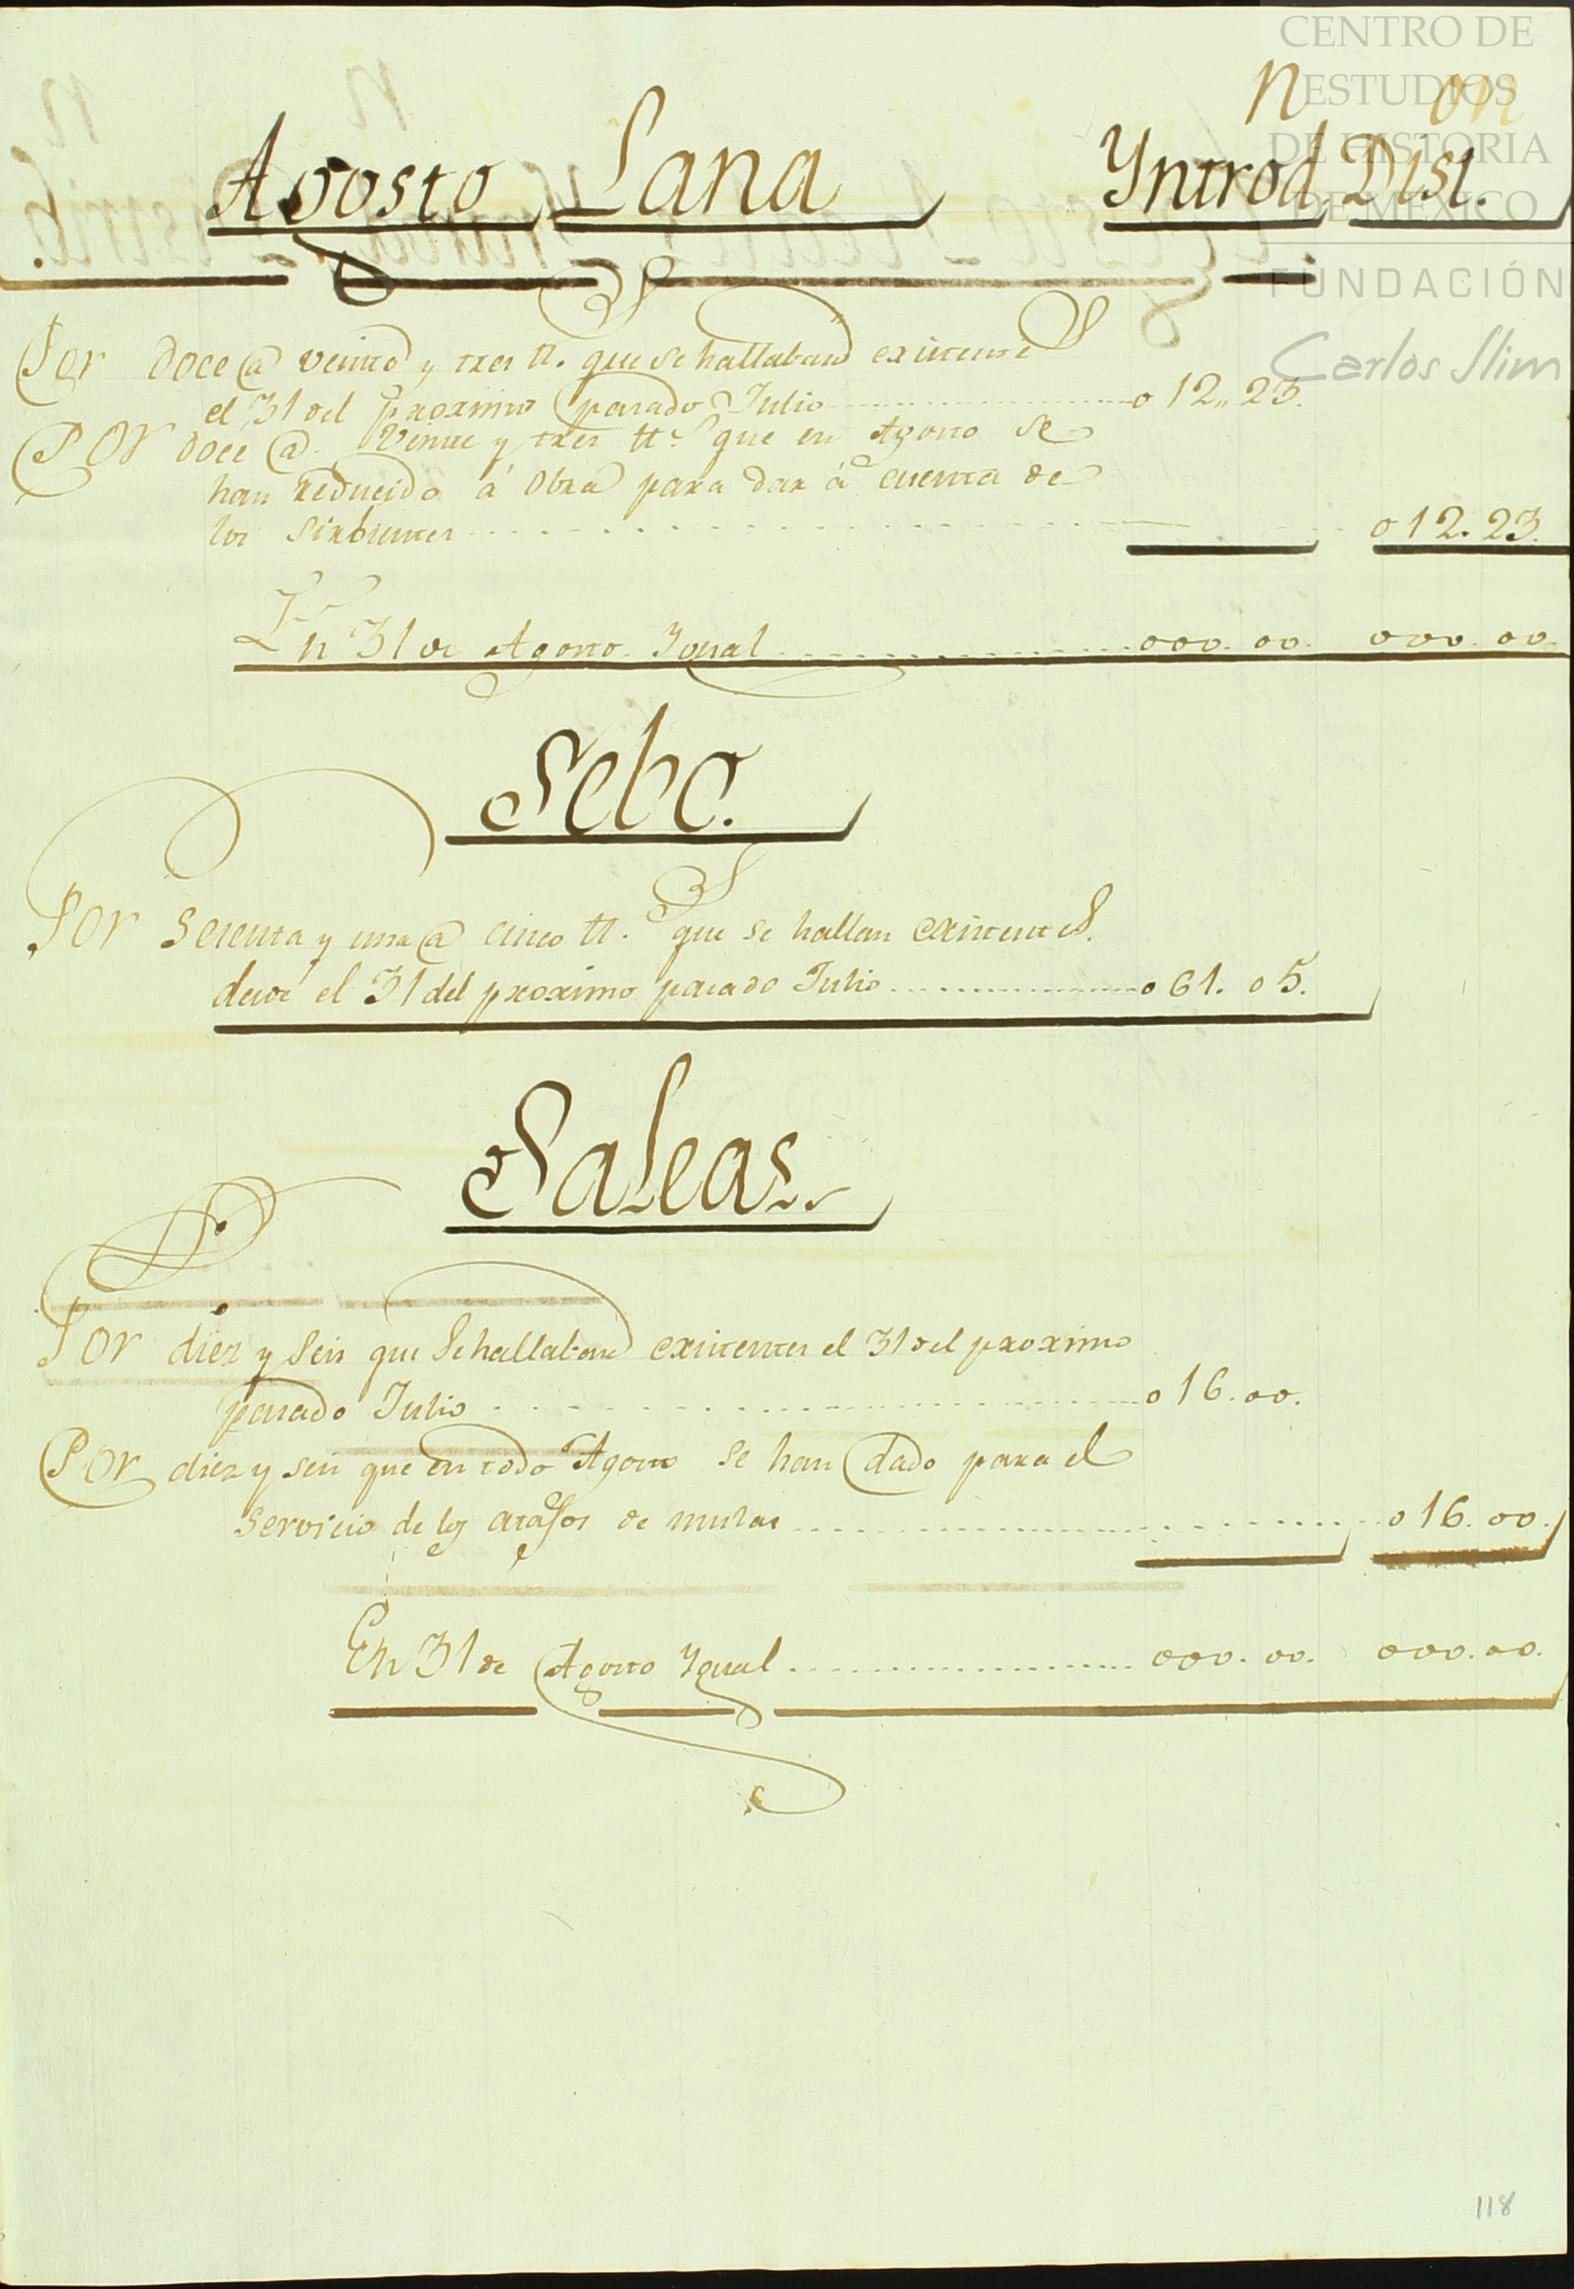 CENTRO DE
ESTUDIOS
DE HISTORIA
DE MÉXICO
FUNDACIÓN
Carlos Slim
Agosto Lana Yntrod.n Dist.on
Por doce @ veinte y tres tt.s que se hallaban existentes
el 31 del proximo pasado Julio 012,, 23.
Por doce @. veinte y tres tt.s que en Agosto se
han reducido á obra para dar á cuenta de
los sirbientes 012. 23.
En 31 de Agosto Ygual 000. 00. 000. 00.
Sebo.
Por sesenta y una @ cinco tt.s que se hallan existentes
desde el 31 del proximo pasado Julio 061. 05.
Saleas.
Por diez y seis que se hallaban existentes el 31 del proximo
pasado Julio 016. 00.
Por diez y seis que en todo Agosto se han dado para el
servicio de los atajos de mulas 016. 00.
En 31 de Agosto Ygual 000. 00. 000. 00.
118